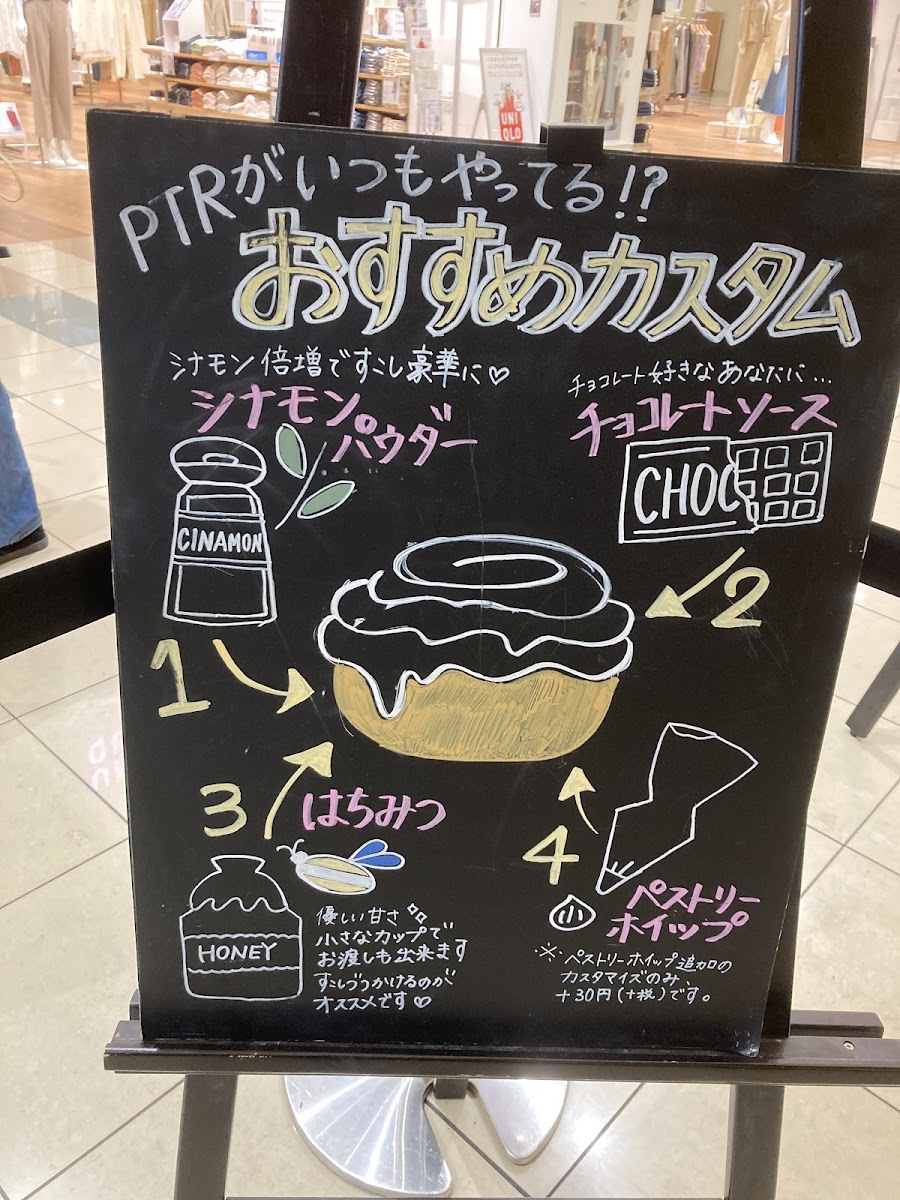 UNI
QLO
PTRがいつもやってる!?
おすすめカスタム
シナモン倍増ですこし豪華に♡
シナモン
パウダー
CINAMON
1
チョコレート好きなあなたに…
チョコレートソース
CHOC
2
3
はちみつ
HONEY
優しい甘さ
小さなカップで
お渡しも出来ます
すこしづつかけるのが
オススメです♡
4
ペストリー
ホイップ
※ペストリーホイップ追加の
カスタマイズのみ、
+30円(+税)です。